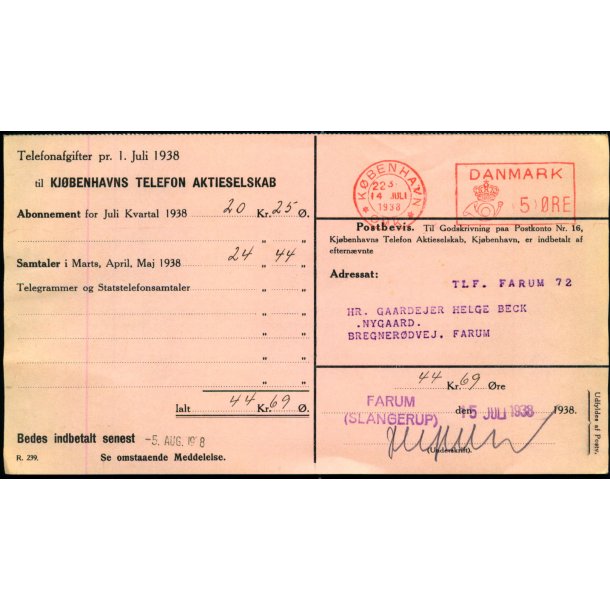 Telefonafgifter pr. 1. Juli 1938
til KJØBENHAVNS TELEFON AKTIESELSKAB
Abonnement for Juli Kvartal 1938 20 Kr. 25 Ø.
" "
Samtaler i Marts, April, Maj 1938 24 " 44 "
Telegrammer og Statstelefonsamtaler " "
" "
" "
" "
" "
Ialt 44 Kr. 69 Ø.
Bedes indbetalt senest -5. AUG. 1938
R. 239. Se omstaaende Meddelelse.
KØBENHAVN
22
14 JULI
1938
OMK.
DANMARK
5 ØRE
Postbevis. Til Godskrivning paa Postkonto Nr. 16,
Kjøbenhavns Telefon Aktieselskab, Kjøbenhavn, er indbetalt af
efternævnte
Adressat:
TLF. FARUM 72
HR. GAARDEJER HELGE BECK
.NYGAARD.
BREGNERØDVEJ. FARUM
44 Kr. 69 Øre
FARUM
(SLANGERUP)
den 15 JULI 1938 1938.
(Underskrift).
Udfyldes af Postv.